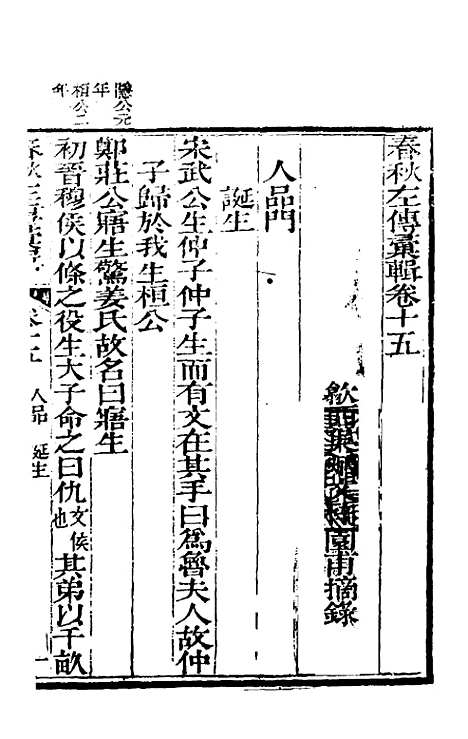 春秋左傳彙輯卷十五
歙西
園甫摘錄
人品門
誕生
宋武公生仲子仲子生而有文在其手曰爲魯夫人故仲
子歸於我生桓公
隱公元年
鄭莊公寤生驚姜氏故名曰寤生
桓公二年
初晉穆侯以條之役生大子命之曰仇文侯也其弟以千畝
春秋左傳彙輯 卷十五 人品 誕生 一